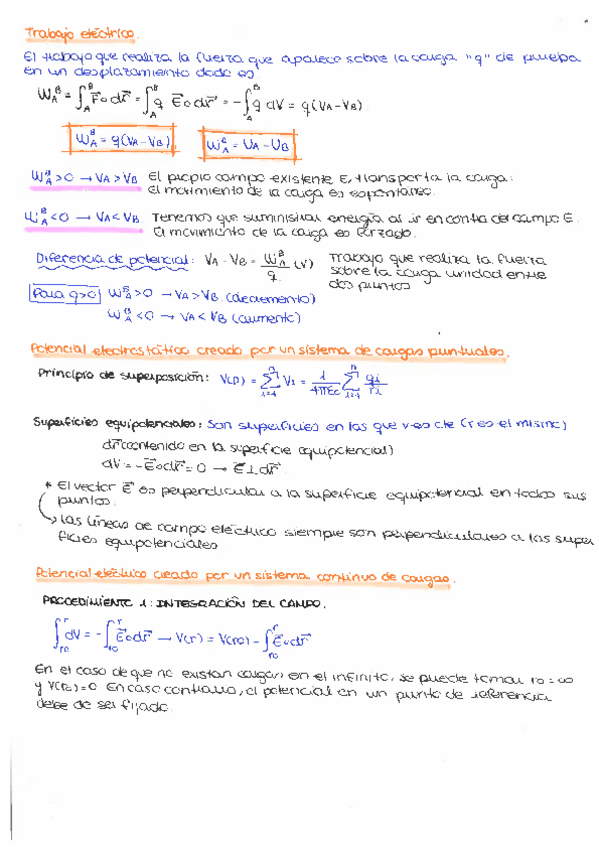 Trabajo eléctrico.
El trabajo que realiza la fuerza que aparece sobre la carga "q" de prueba
en un desplazamiento dado es
W_A^B = ∫_A^B F∘dr = ∫_A^B q E∘dr = -∫_A^B q dV = q(VA-VB)
W_A^B = q(VA-VB) W_A^B = UA-UB
W_A^B > 0 → VA > VB El propio campo existente E, transporta la carga:
El movimiento de la carga es espontáneo.
W_A^B < 0 → VA < VB Tenemos que suministrar energía al ir en contra del campo E.
El movimiento de la carga es forzado.
Diferencia de potencial: VA - VB = W_A^B / q (V) Trabajo que realiza la fuerza
sobre la carga unidad entre
dos puntos
Para q>0 W_A^B > 0 → VA > VB (decremento)
W_A^B < 0 → VA < VB (aumento)
Potencial electrostático creado por un sistema de cargas puntuales.
Principio de superposición: V(r) = Σ_{i=1}^n Vi = 1/4πε0 Σ_{i=1}^n qi/ri
Superficies equipotenciales: Son superficies en las que v es cte (r es el mismo)
dr contenido en la superficie equipotencial)
dV = -E∘dr = 0 → E⊥dr.
* El vector E es perpendicular a la superficie equipotencial en todos sus
puntos.
↳ las líneas de campo eléctrico siempre son perpendiculares a las super
ficies equipotenciales
Potencial eléctrico creado por un sistema continuo de cargas.
PROCEDIMIENTO 1: INTEGRACIÓN DEL CAMPO.
∫_{r0}^r dV = -∫_{r0}^r E∘dr → V(r) = V(r0) - ∫_{r0}^r E∘dr
En el caso de que no existan cargas en el infinito, se puede tomar r0 = ∞
y V(r0)=0 En caso contrario, el potencial en un punto de referencia
debe de ser fijado.